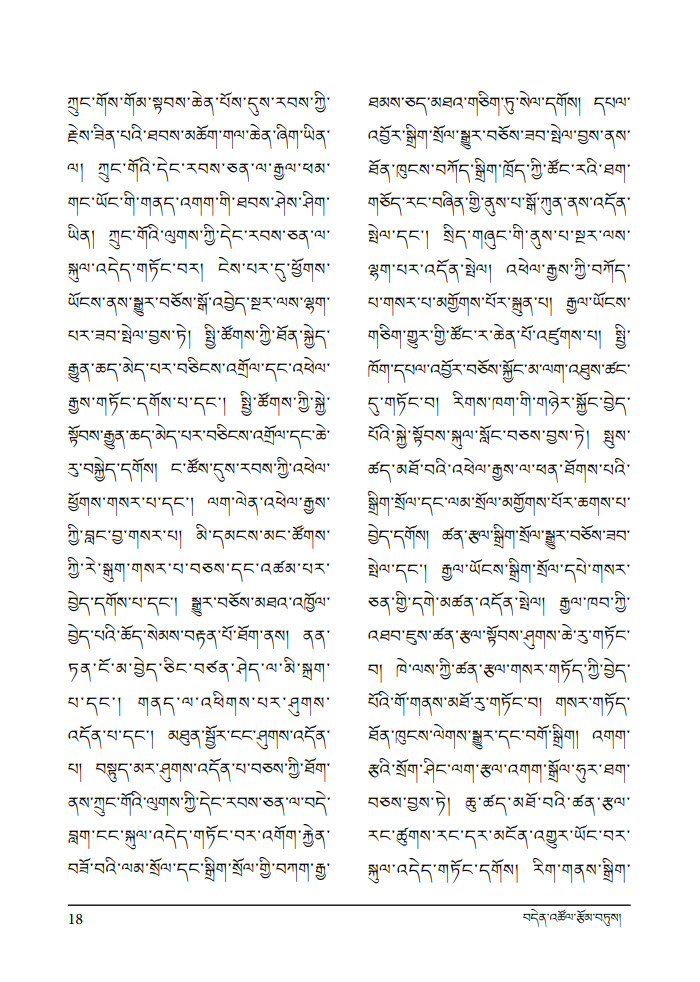 ཀྲུང་གོས་གོམ་སྟབས་ཆེན་པོས་དུས་རབས་ཀྱི་
རྗེས་ཟིན་པའི་ཐབས་མཆོག་གལ་ཆེན་ཞིག་ཡིན་
ལ། ཀྲུང་གོའི་དེང་རབས་ཅན་ལ་རྒྱལ་ཕམ་
གང་ཡོང་གི་གནད་འགག་གི་ཐབས་ཤེས་ཤིག་
ཡིན། ཀྲུང་གོའི་ལུགས་ཀྱི་དེང་རབས་ཅན་ལ་
སྐུལ་འདེད་གཏོང་བར། ངེས་པར་དུ་ཕྱོགས་
ཡོངས་ནས་སྒྱུར་བཅོས་སྒོ་འབྱེད་སྔར་ལས་ལྷག་
པར་ཟབ་སྤེལ་བྱས་ཏེ། སྤྱི་ཚོགས་ཀྱི་ཐོན་སྐྱེད་
རྒྱུན་ཆད་མེད་པར་བཅིངས་འགྲོལ་དང་འཕེལ་
རྒྱས་གཏོང་དགོས་པ་དང་། སྤྱི་ཚོགས་ཀྱི་སྐྱེ་
སྟོབས་རྒྱུན་ཆད་མེད་པར་བཅིངས་འགྲོལ་དང་ཆེ་
རུ་བསྐྱེད་དགོས། ང་ཚོས་དུས་རབས་ཀྱི་འཕེལ་
ཕྱོགས་གསར་པ་དང་། ལག་ལེན་འཕེལ་རྒྱས་
ཀྱི་བླང་བྱ་གསར་པ། མི་དམངས་མང་ཚོགས་
ཀྱི་རེ་སྒུག་གསར་པ་བཅས་དང་འཚམ་པར་
བྱེད་དགོས་པ་དང་། སྒྱུར་བཅོས་མཐའ་འཁྱོལ་
བྱེད་པའི་ཆོད་སེམས་བརྟན་པོ་ཐོག་ནས། ནན་
ཏན་ངོ་མ་བྱེད་ཅིང་བཙན་ཤེད་ལ་མི་སྐྲག་
པ་དང་། གནད་ལ་འཕིགས་པར་ཤུགས་
འདོན་པ་དང་། མཐུན་སྦྱོར་ངང་ཤུགས་འདོན་
པ། བསྟུད་མར་ཤུགས་འདོན་པ་བཅས་ཀྱི་ཐོག་
ནས་ཀྲུང་གོའི་ལུགས་ཀྱི་དེང་རབས་ཅན་ལ་བདེ་
བླག་ངང་སྐུལ་འདེད་གཏོང་བར་འགོག་རྐྱེན་
བཟོ་བའི་ལམ་སྲོལ་དང་སྒྲིག་སྲོལ་གྱི་བཀག་རྒྱ་
ཐམས་ཅད་མཐའ་གཅིག་ཏུ་སེལ་དགོས། དཔལ་
འབྱོར་སྒྲིག་སྲོལ་སྒྱུར་བཅོས་ཟབ་སྤེལ་བྱས་ནས་
ཐོན་ཁུངས་བཀོད་སྒྲིག་ཁྲོད་ཀྱི་ཚོང་རའི་ཐག་
གཅོད་རང་བཞིན་གྱི་ནུས་པ་སྒོ་ཀུན་ནས་འདོན་
སྤེལ་དང་། སྲིད་གཞུང་གི་ནུས་པ་སྔར་ལས་
ལྷག་པར་འདོན་སྤེལ། འཕེལ་རྒྱས་ཀྱི་བཀོད་
པ་གསར་པ་མགྱོགས་པོར་སྐྲུན་པ། རྒྱལ་ཡོངས་
གཅིག་གྱུར་གྱི་ཚོང་ར་ཆེན་པོ་འཛུགས་པ། སྤྱི་
ཁོག་དཔལ་འབྱོར་བཅོས་སྐྱོང་མ་ལག་འཐུས་ཚང་
དུ་གཏོང་བ། རིགས་ཁག་གི་གཉེར་སྐྱོང་བྱེད་
པོའི་སྐྱེ་སྟོབས་སྐུལ་སློང་བཅས་བྱས་ཏེ། སྤུས་
ཚད་མཐོ་བའི་འཕེལ་རྒྱས་ལ་ཕན་ཐོགས་པའི་
སྒྲིག་སྲོལ་དང་ལམ་སྲོལ་མགྱོགས་པོར་ཆགས་པ་
བྱེད་དགོས། ཚན་རྩལ་སྒྲིག་སྲོལ་སྒྱུར་བཅོས་ཟབ་
སྤེལ་དང་། རྒྱལ་ཡོངས་སྒྲིག་སྲོལ་དཔེ་གསར་
ཅན་གྱི་དགེ་མཚན་འདོན་སྤེལ། རྒྱལ་ཁབ་ཀྱི་
འཐབ་ཇུས་ཚན་རྩལ་སྟོབས་ཤུགས་ཆེ་རུ་གཏོང་
བ། ཁེ་ལས་ཀྱི་ཚན་རྩལ་གསར་གཏོད་ཀྱི་བྱེད་
པོའི་གོ་གནས་མཐོ་རུ་གཏོང་བ། གསར་གཏོད་
ཐོན་ཁུངས་ལེགས་སྒྱུར་དང་བགོ་སྒྲིག། འགག་
རྩའི་སྲོག་ཤིང་ལག་རྩལ་འགག་སྒྲོལ་ཧུར་ཐག་
བཅས་བྱས་ཏེ། ཆུ་ཚད་མཐོ་བའི་ཚན་རྩལ་
རང་ཚུགས་རང་དར་མངོན་འགྱུར་ཡོང་བར་
སྐུལ་འདེད་གཏོང་དགོས། རིག་གནས་སྒྲིག་
18
བདེན་འཚོལ་རྩོམ་བཏུས།